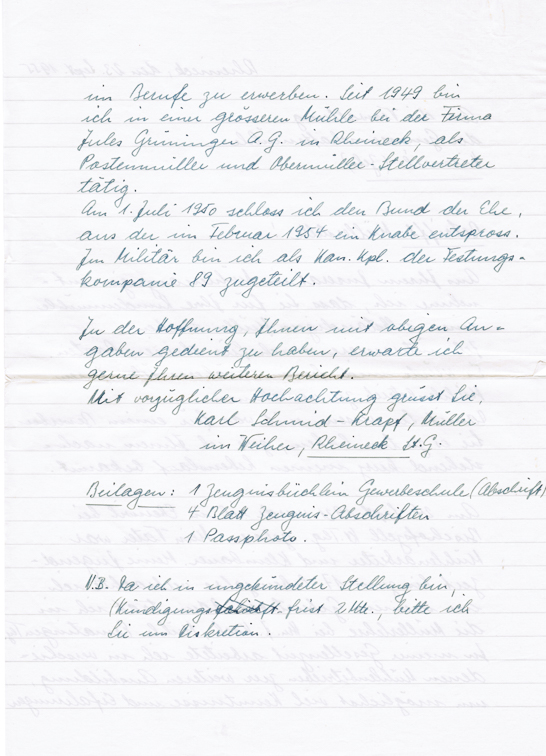 im Berufe zu erwerben. Seit 1949 bin
ich in einer grösseren Mühle bei der Firma
Jules Grüninger A.G. in Rheineck, als
Postenmüller und Obermüller-Stellvertreter
tätig.
Am 1. Juli 1950 schloss ich den Bund der Ehe,
aus der im Februar 1954 ein Knabe entspross.
Im Militär bin ich als Kan. Kpl. der Festungs-
kompanie 89 zugeteilt.
In der Hoffnung, Ihnen mit obigen An-
gaben gedient zu haben, erwarte ich
gerne Ihren weiteren Bericht.
Mit vorzüglicher Hochachtung grüsst Sie,
Karl Schmid-Krapf, Müller
im Weiher, Rheineck St.G.
Beilagen: 1 Zeugnisbüchlein Gewerbeschule (Abschrift)
4 Blatt Zeugnis-Abschriften
1 Passphoto.
N.B. Da ich in ungekündeter Stellung bin,
(Kündigungs frist 2 Mte., bitte ich
Sie um Diskretion.